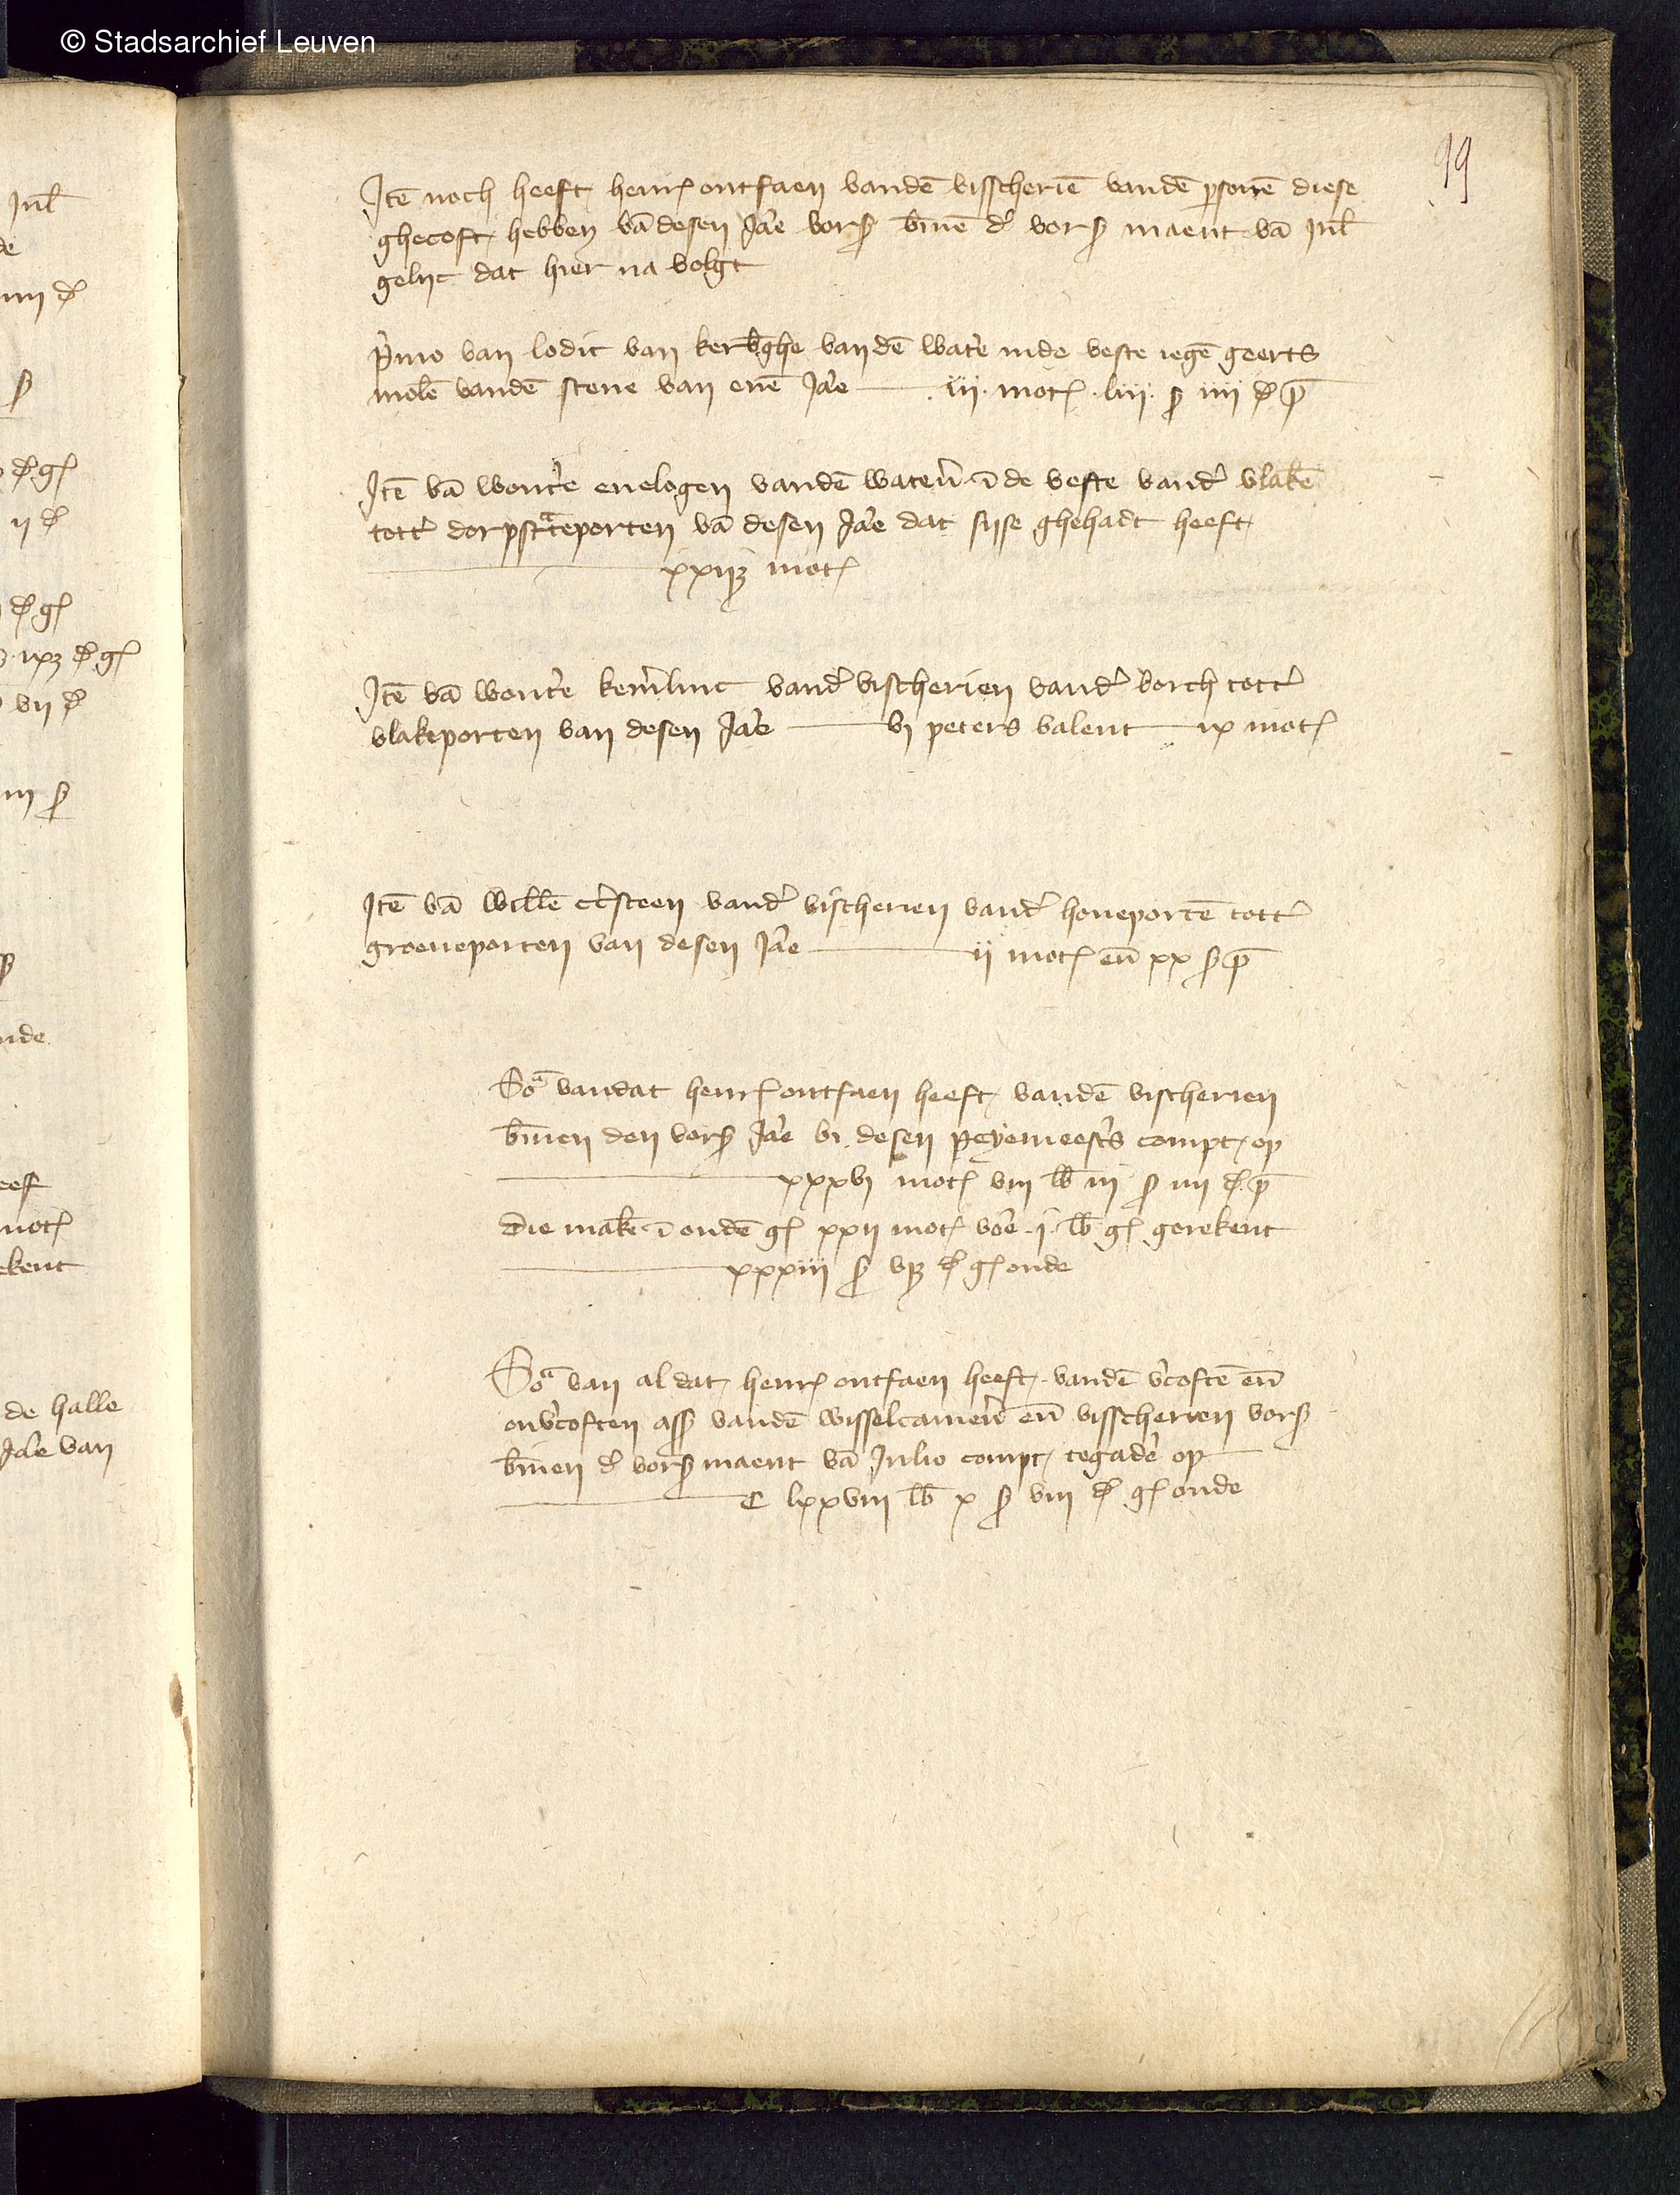 © Stadsarchief Leuven
99
Jtē noch heeft henr ontfaen vandē visscheriē vandē psonē diese
ghecoft hebben vā desen Jae vors binnē d' vors maent vā Jul
gelijc dat hier na volgt
p'mo van lodic van kerb'ghe vandē wate inde veste iegē geerts
molē vandē stene van enē Jae iii mot liii s iiii d p
Jtē vā wout'e enelogen vandē wateren ī de veste vand' vlakē
tott' dorpst'teporten vā desen Jae dat sijse ghehadt heeft
xxii mot
Jtē vā wout'e kem'linc vand' vischerien vand' borch tott'
vlakeporten van desen Jae vi peters valent ix mot
Jtē vā willē c'steen vand' vischerien vand' houeportē tott'
groeneporten van desen Jae ii mot eñ xx s p
Soa vandat henr ontfaen heeft vandē vischerien
binnen den vors Jae bi desen peyemeest's compt op
xxxvi mot viii lb iii s iiii d p
die makē ī oudē g xxii mot voe i lb g gerekent
xxxiii s v d g oude
Soa van al dat henr ontfaen heeft vandē v'coftē eñ
onv'coften ass vandē wisselcamerē eñ visscherien vors
binnen d' vors maent vā Julio compt tegad'e op
C lxxviii lb x s viii d g oude
Jul
de
iiii d
s
d g
ii d
d g
d g
vii d
iii s
mot
ekent
de halle
Jae van